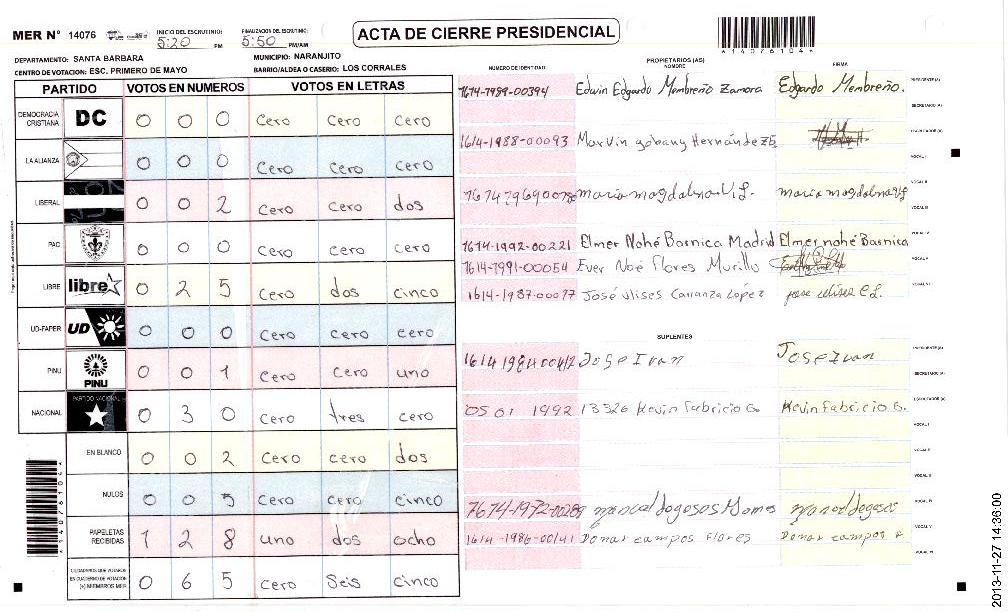 MER N° 14076
INICIO DEL ESCRUTINIO: 5:20 PM
FINALIZACION DEL ESCRUTINIO: 5:50 PM/AM
ACTA DE CIERRE PRESIDENCIAL
*14076104*
DEPARTAMENTO: SANTA BARBARA
MUNICIPIO: NARANJITO
CENTRO DE VOTACION: ESC. PRIMERO DE MAYO
BARRIO/ALDEA O CASERIO: LOS CORRALES
PARTIDO VOTOS EN NUMEROS VOTOS EN LETRAS
DEMOCRACIA CRISTIANA DC 0 0 0 Cero Cero Cero
LA ALIANZA 0 0 0 Cero Cero cero
LIBERAL 0 0 2 Cero Cero dos
PAC 0 0 0 Cero Cero cero
LIBRE libre 0 2 5 Cero dos cinco
UD-FAPER UD 0 0 0 Cero Cero cero
PINU PINU 0 0 1 Cero Cero uno
NACIONAL PARTIDO NACIONAL 0 3 0 Cero tres cero
EN BLANCO 0 0 2 Cero cero dos
NULOS 0 0 5 Cero cero cinco
PAPELETAS RECIBIDAS 1 2 8 uno dos ocho
CIUDADANOS QUE VOTARON EN CUADERNO DE VOTACION (+) MIEMBROS MER 0 6 5 Cero Seis cinco
PROPIETARIOS (AS)
NUMERO DE IDENTIDAD NOMBRE FIRMA
Edwin Edgardo Membreño Zamora Edgardo Membreño. PRESIDENTE (A)
SECRETARIO (A)
1614-1988-00093 Marvin gobany Hernández ESCRUTADOR (A)
VOCAL I
maria magdalena V.L. VOCAL II
VOCAL III
1614-1992-00221 Elmer Nohé Barnica Madrid Elmer nohé Barnica VOCAL IV
1614-1991-00054 Ever Noé Flores Murillo VOCAL V
1614-1987-00077 José Ulises Carranza López jose ulises C L. VOCAL VI
SUPLENTES
Jose Ivan Jose Ivan PRESIDENTE (A)
SECRETARIO (A)
0501 1992 13326 Kevin Fabricio G. Kevin Fabricio G. ESCRUTADOR (A)
VOCAL I
VOCAL II
VOCAL III
VOCAL IV
1614-1986-00141 Donar campos Flores Donar campos F VOCAL V
VOCAL VI
*14076104*
2013-11-27 14:36:00